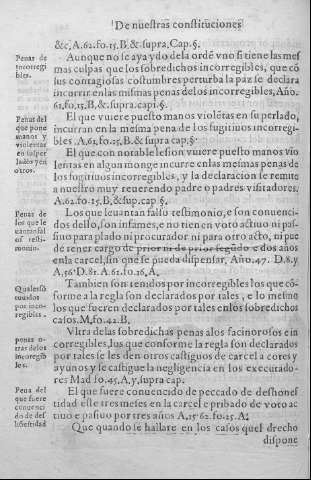 De nuestras constituciones
&c. A.62.fo.15.B.& supra, Cap. §.
Penas de incorregibles.
Aunque no se aya ydo desa ordē vno si tiene las mesmas culpas que los sobredichos incorregibles, que cō
sus contagiosas costumbres perturba la paz se declara
incurrir en las mismas penas de los incorregibles, Año.
61.fo.15.B.&.supra.capi.§.
Penas del que pone manos violentas en su perlado y en otros.
El que vuiere puesto manos violētas en su perlado,
incurran en la mesma pena de los fugitiuos incorregibles. A.61.fo.25.B.& supra cap.§.
El que con notable lesion vuiere puesto manos violentas en algun monge incurre en las mesmas penas de
los fugitiuos incorregibles, y la declaracion se remite
a nuestro muy reuerendo padre o padres visitadores.
A.62.fo.15.B,&sup.cap §.
Penas de los que leuantan falso testimonio.
Los que leuantan falso testimonio, e son conuencidos dello, son infames, e no tienen voto actiuo ni passiuo para plado ni procurador ni para otro acto, ni puede tener cargo de prior ni de prior segūdo e dos años
en la carcel, sin que se pueda dispensar, Año.47. D.8.y
A,56 D.81. A.61.fo.26,A.
Quales son tenidos por incorregibles.
Tambien son tenidos por incorregibles los que cōforme a la regla son declarados por tales, e lo mesmo
los que fueren declarados por tales en los sobredichos
casos. M,fo.42.B.
penas otras de los incorregibles.
Vltra de las sobredichas penas a los facinorosos e incorregibles, los que conforme la regla son declarados
por tales se les den otros castigos de carcel a cores y
ayunos y se castigue la negligencia en los executadores Mad fo.45.A,y,supra cap.
Pena del que fuere conuencido de deshōestidad
El que fuere conuencido de peccado de deshonestidad este tres meses en la carcel e pribado de voto actiuo e pasiuo por tres años A,1562.fo.25.A:
Que quando se hallare en los casos quel drecho
dispone